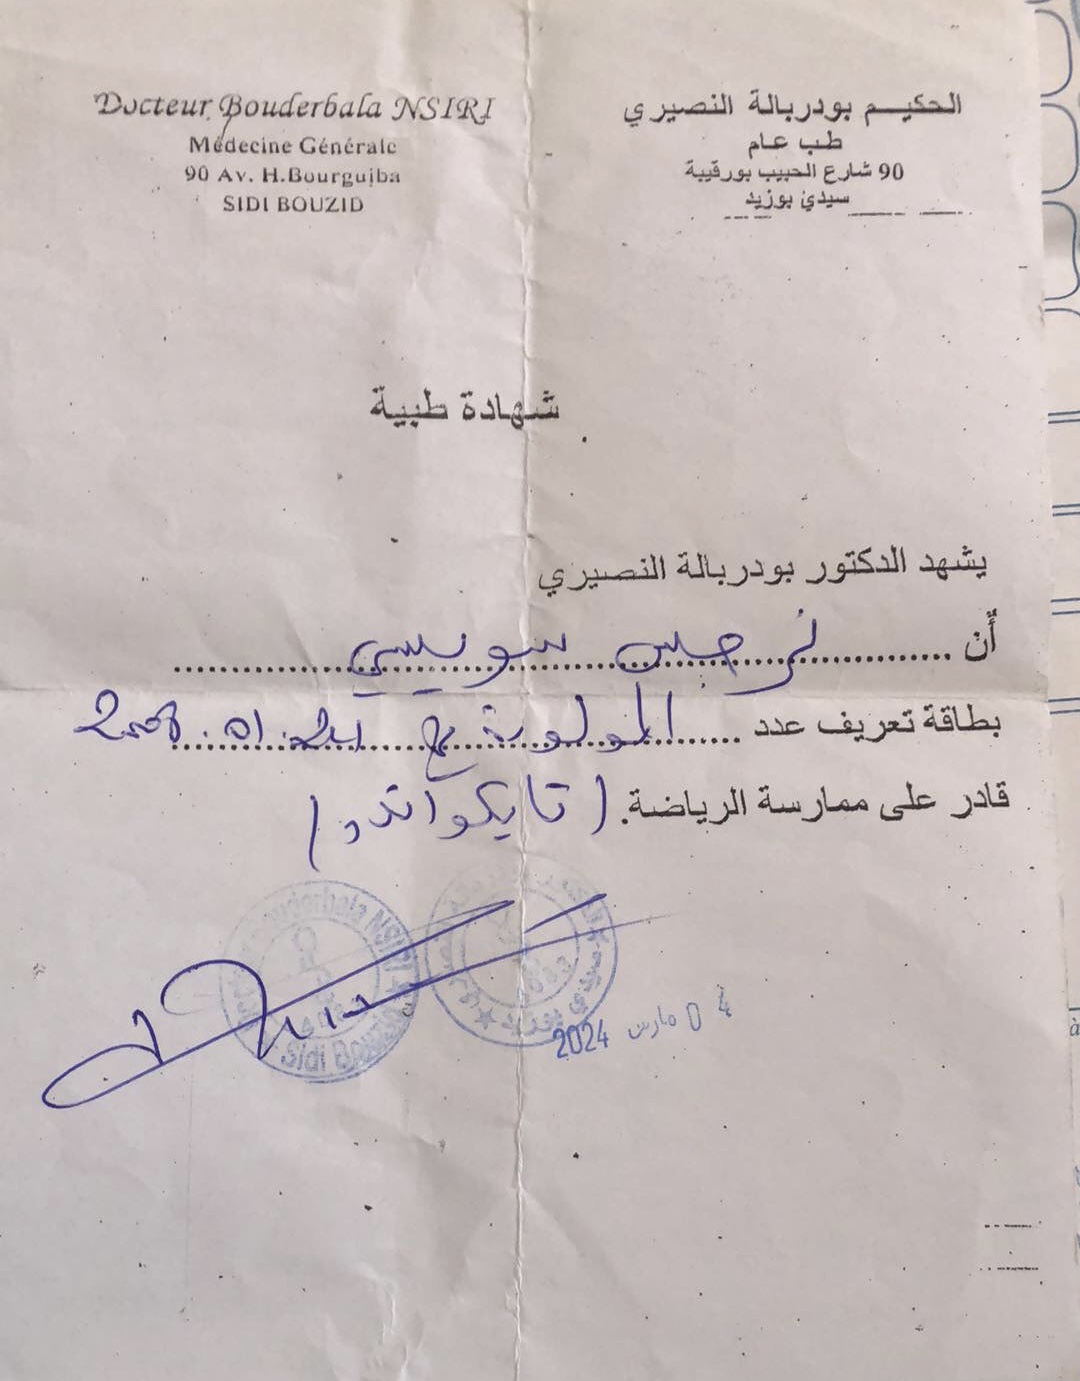 Docteur Bouderbala NSIRI
Médecine Générale
90 Av. H.Bourguiba
SIDI BOUZID
الحكيم بودربالة النصيري
طب عام
90 شارع الحبيب بورقيبة
سيدي بوزيد
شهادة طبية
يشهد الدكتور بودربالة النصيري
أنّ ............ نرجس سويسي ............
بطاقة تعريف عدد ...... المولودة في
قادر على ممارسة الرياضة. (تايكواندو)
Bouderbala NSIRI
Sidi Bouzid
سيدي بوزيد
04 مارس 2024